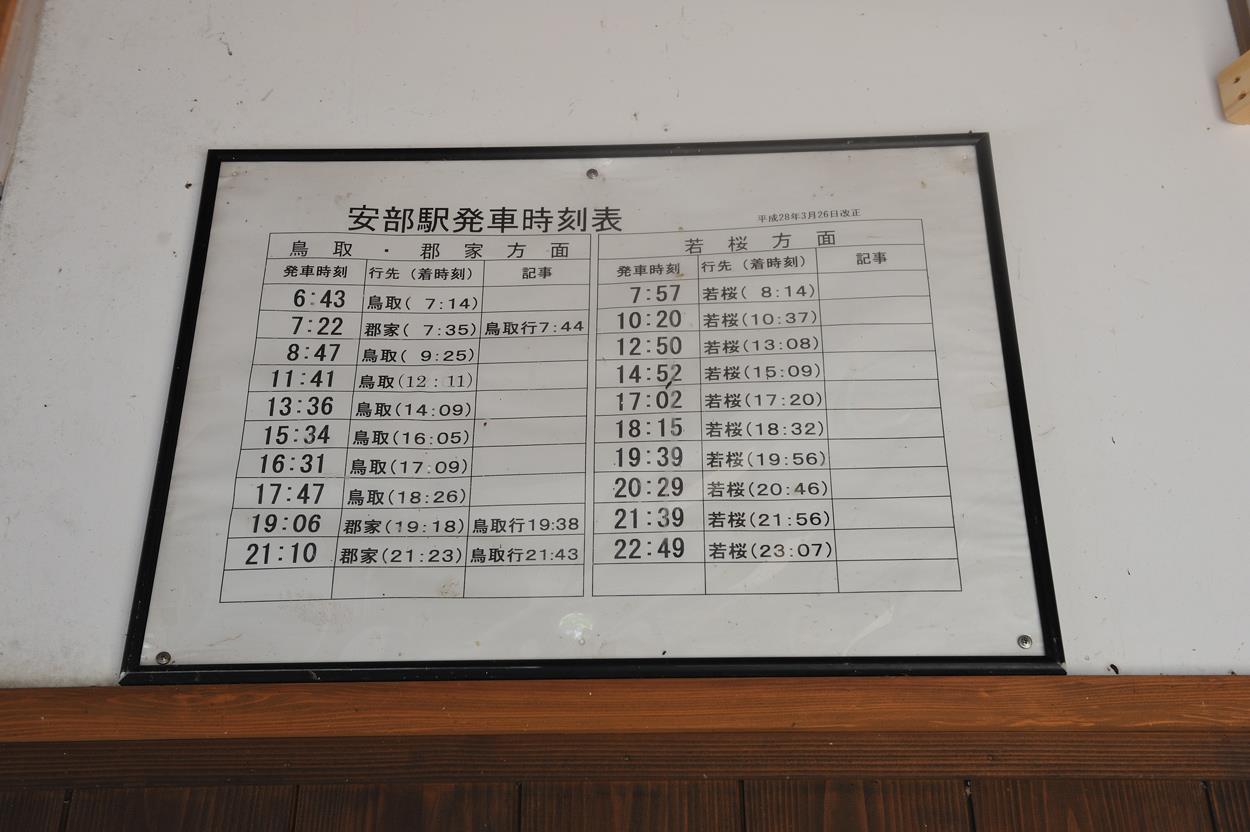 安部駅発車時刻表
平成28年3月26日改正
鳥取・郡家方面
発車時刻 行先（着時刻） 記事
6:43 鳥取( 7:14)
7:22 郡家( 7:35) 鳥取行7:44
8:47 鳥取( 9:25)
11:41 鳥取(12:11)
13:36 鳥取(14:09)
15:34 鳥取(16:05)
16:31 鳥取(17:09)
17:47 鳥取(18:26)
19:06 郡家(19:18) 鳥取行19:38
21:10 郡家(21:23) 鳥取行21:43
若桜方面
発車時刻 行先（着時刻） 記事
7:57 若桜( 8:14)
10:20 若桜(10:37)
12:50 若桜(13:08)
14:52 若桜(15:09)
17:02 若桜(17:20)
18:15 若桜(18:32)
19:39 若桜(19:56)
20:29 若桜(20:46)
21:39 若桜(21:56)
22:49 若桜(23:07)